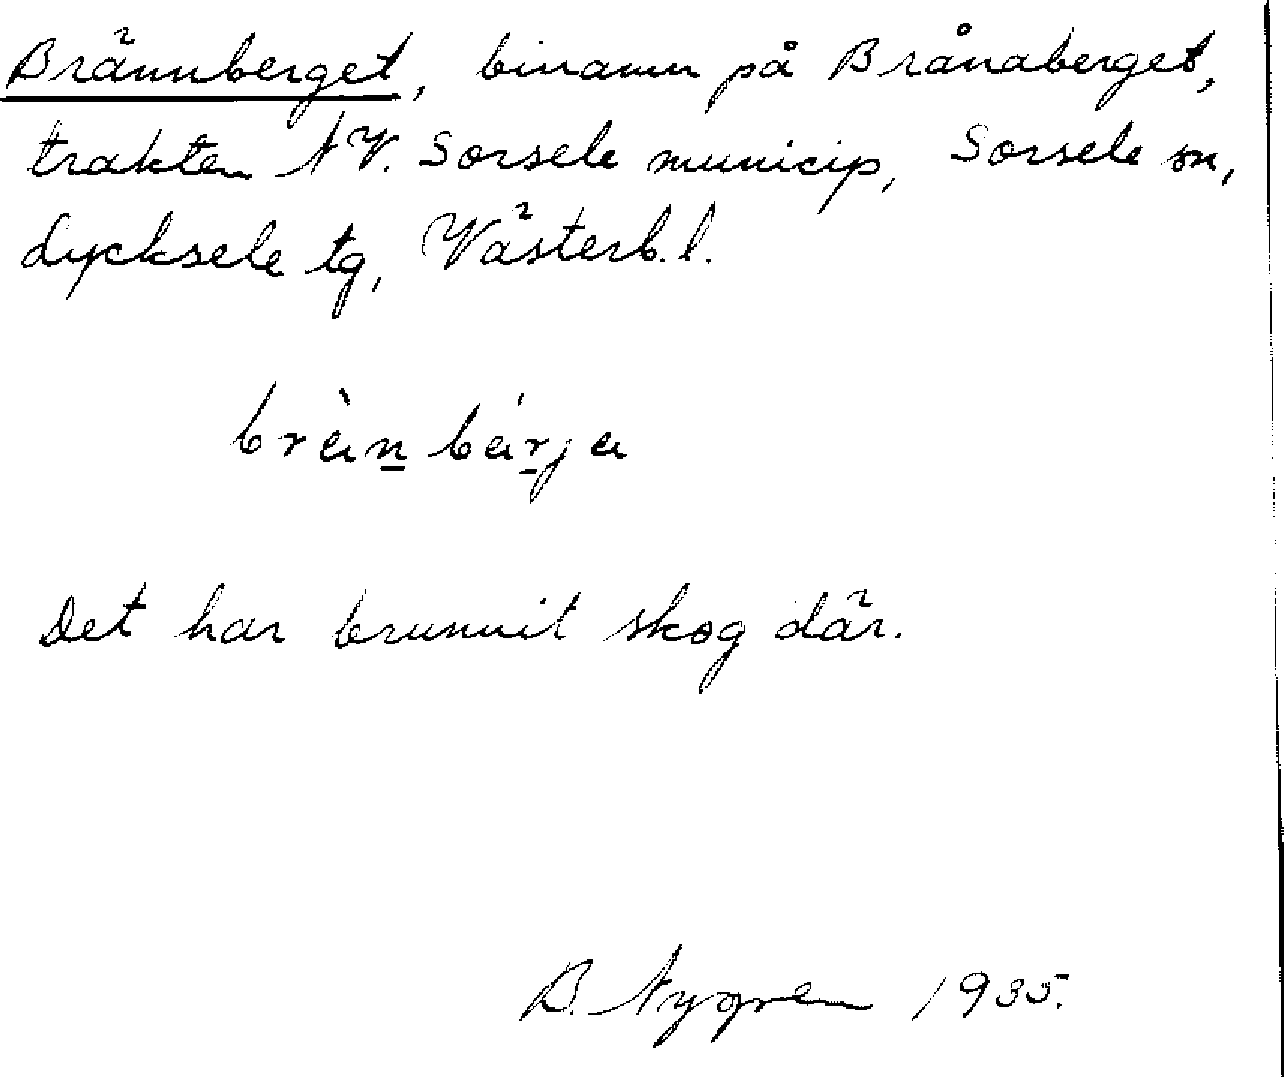 Brännberget, binamn på Brånaberget,
trakten NV. Sorsele municip, Sorsele sn,
Lycksele tg, Västerb. l.
brèn bérja
Det har brunnit skog där.
B. Nygren 1935.